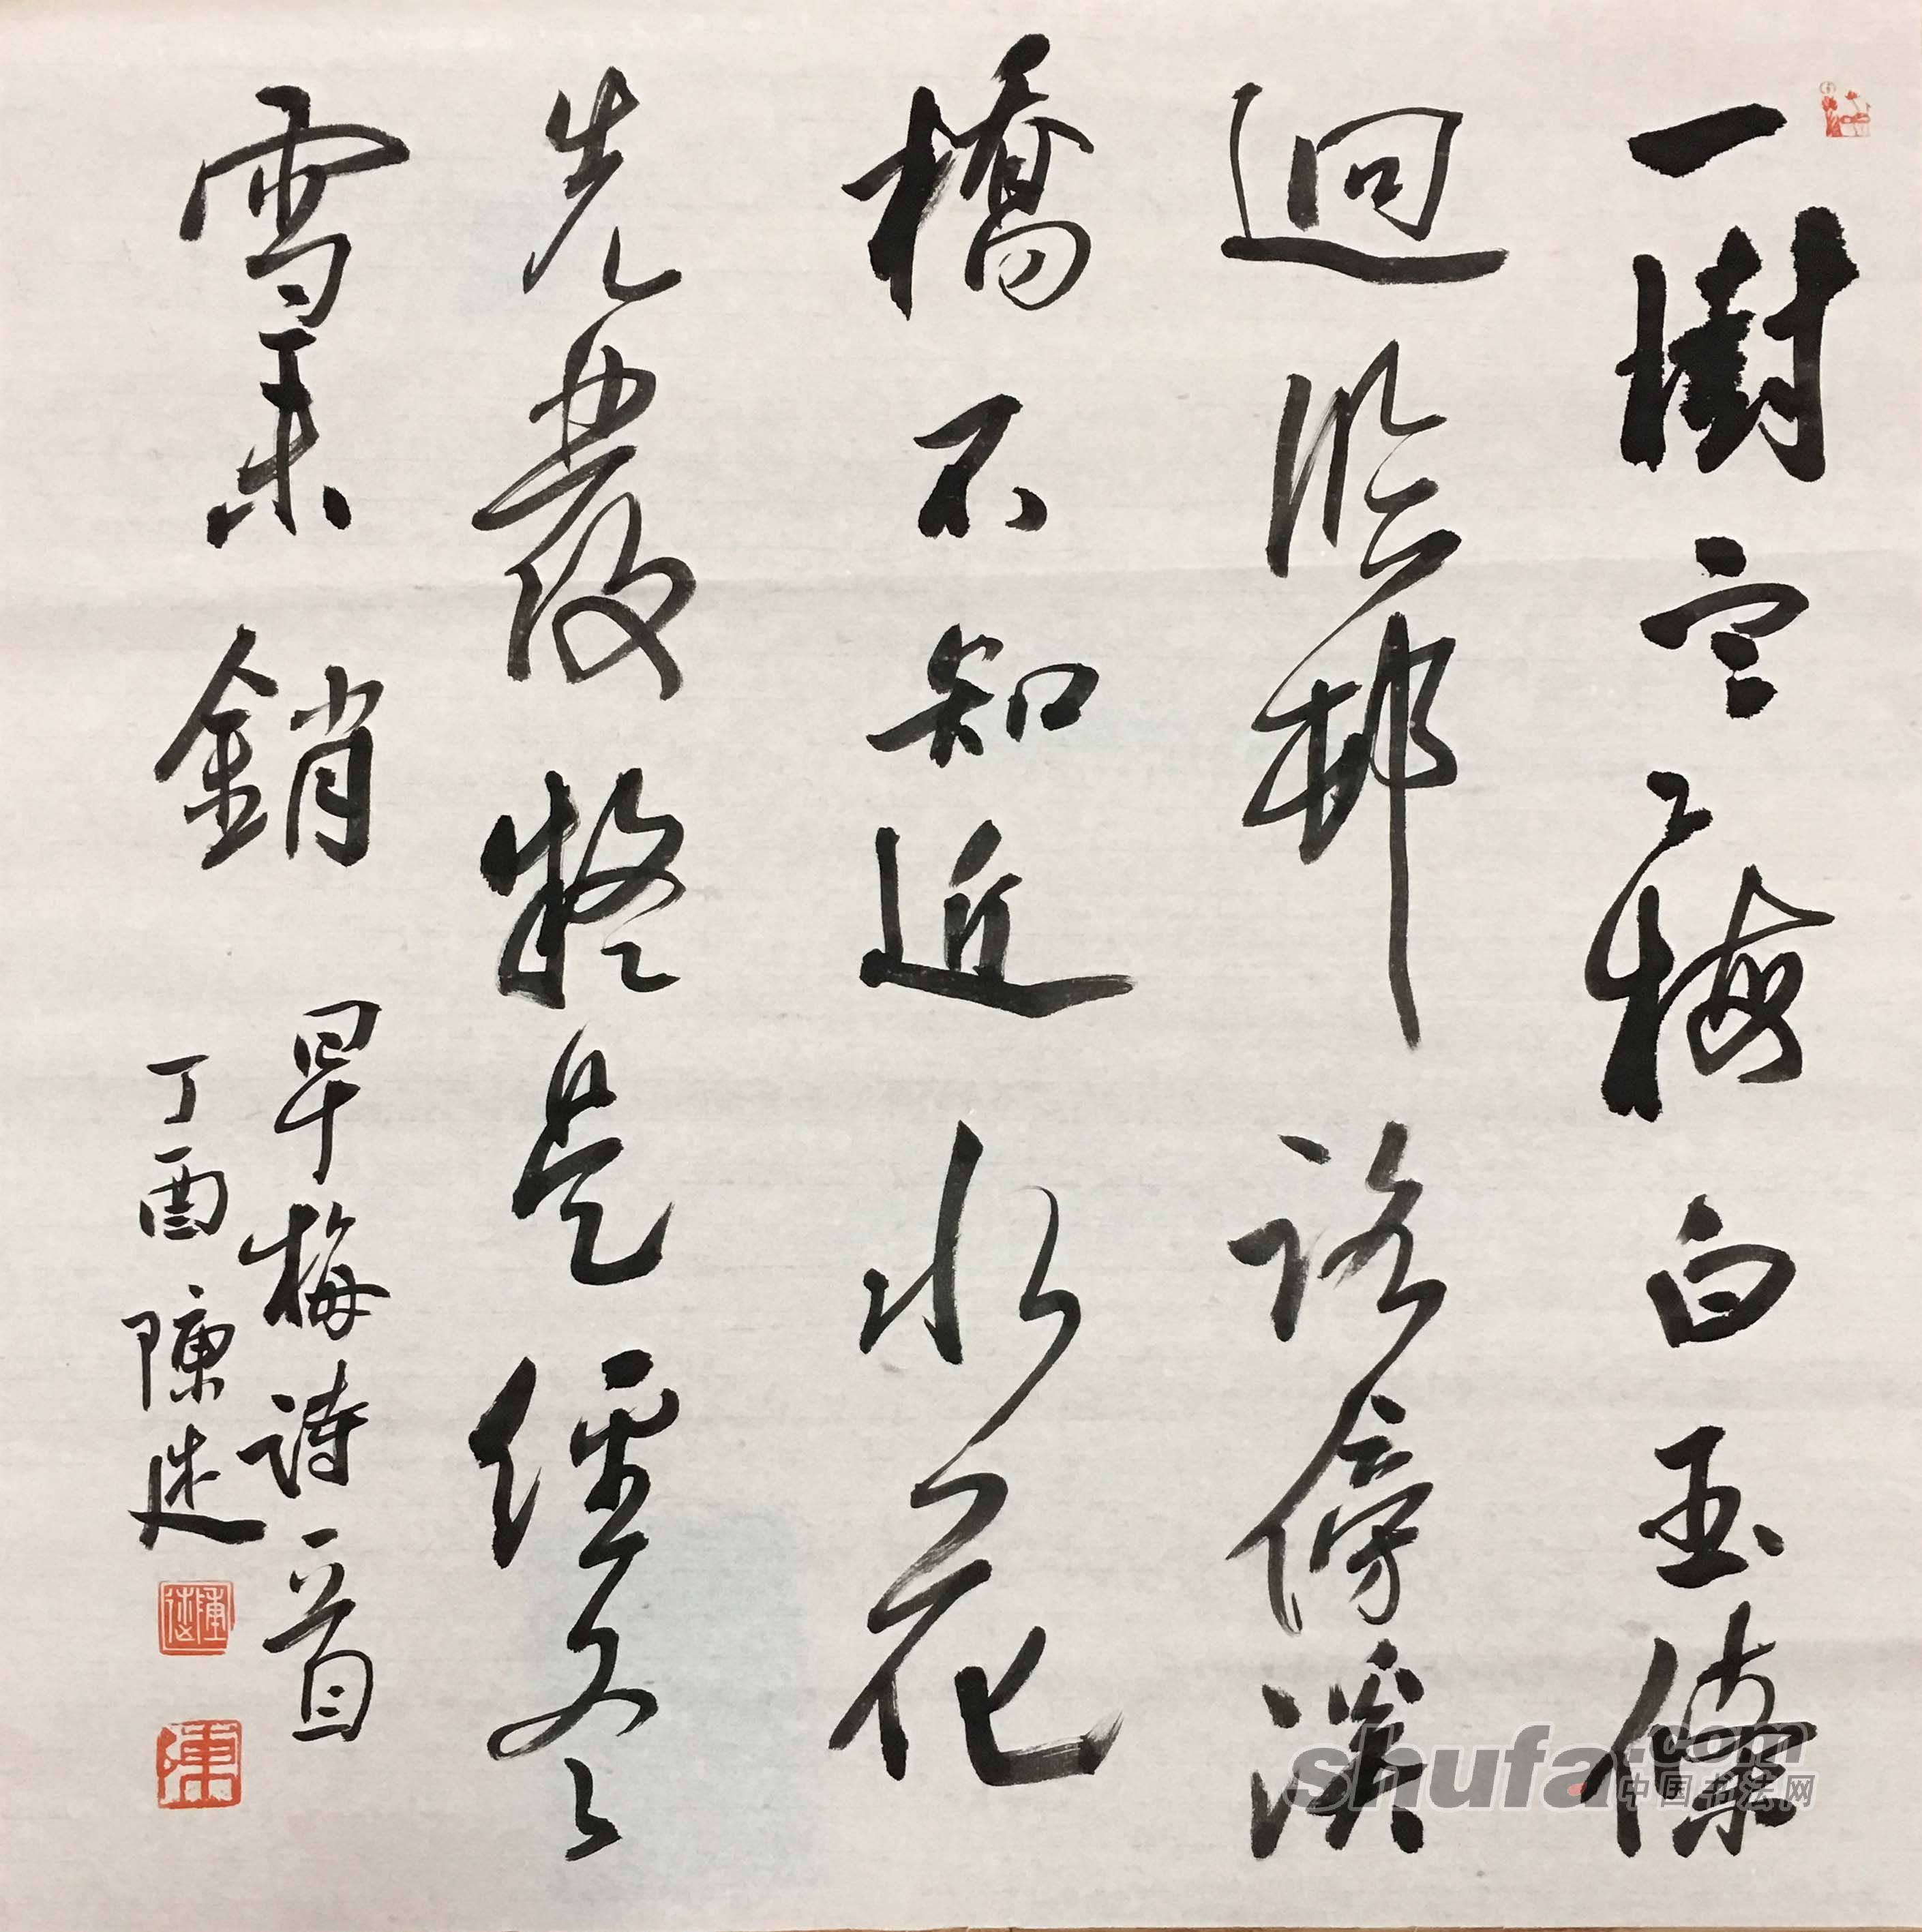 一樹寒梅白玉條
逈臨邨路傍溪
橋不知近水花
先發疑是經冬
雪未銷
早梅詩一首
丁酉陳述
shufa.com
中国书法网